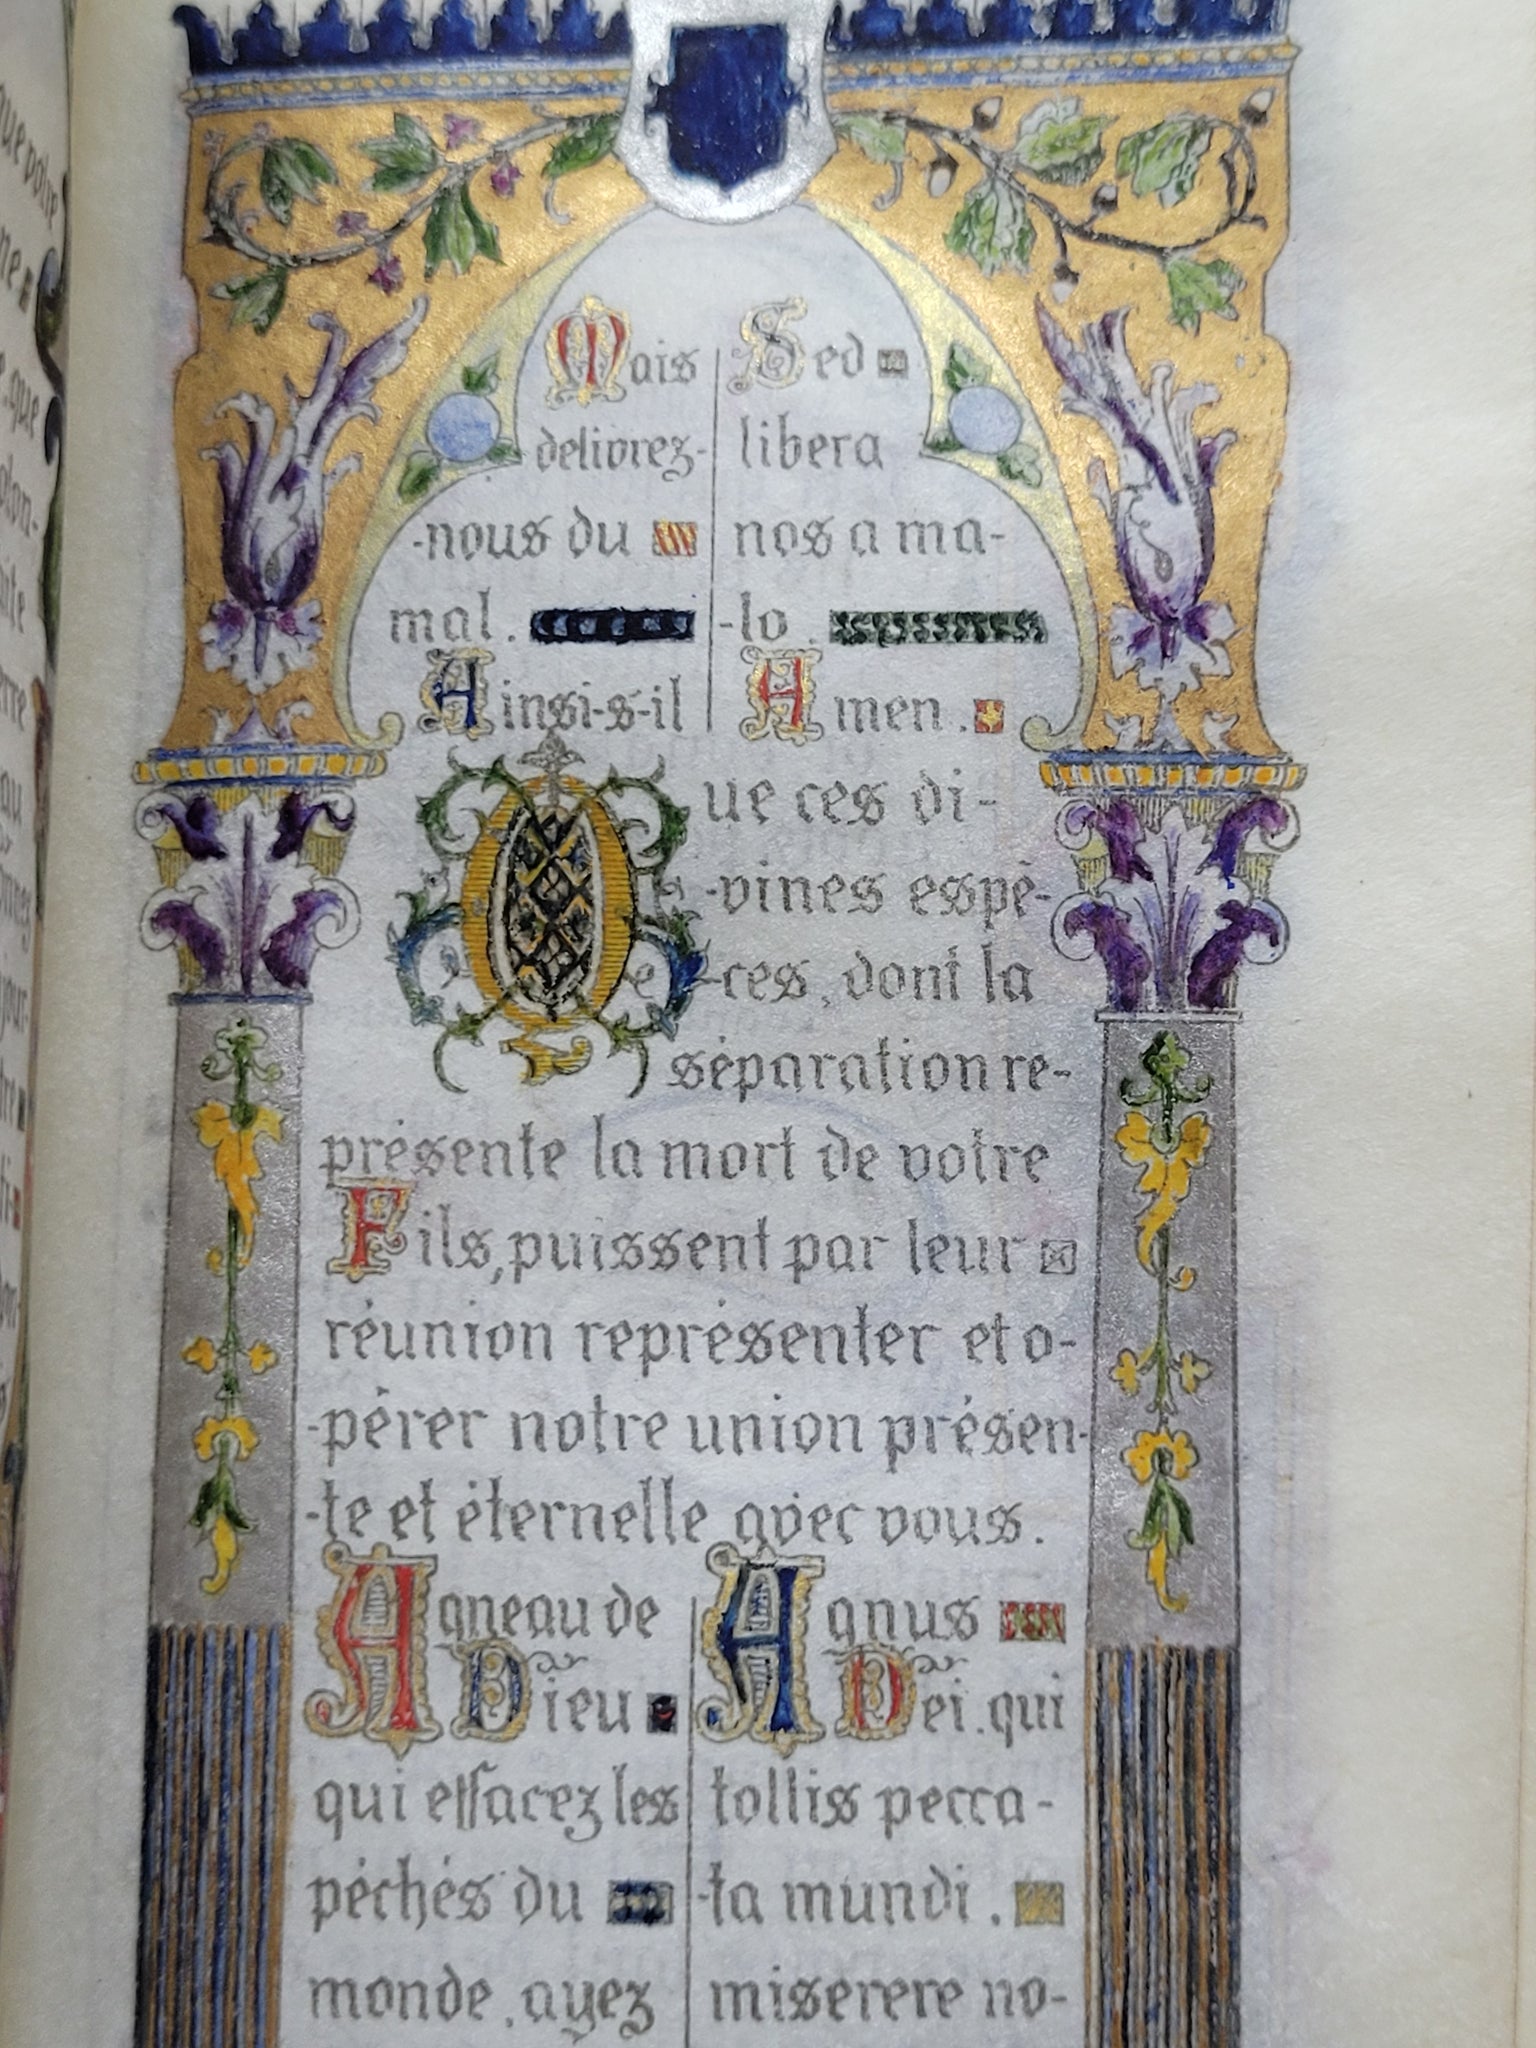 Mais
delivrez-
-nous du
mal.
Ainsi-s-il
Sed
libera
nos a ma-
-lo.
Amen.
Que ces di-
-vines espè-
-ces, dont la
séparation re-
présente la mort de votre
Fils, puissent par leur
réunion représenter et o-
-pérer notre union présen-
-te et éternelle avec vous.
Agneau de
Dieu
qui effacez les
péchés du
monde, ayez
Agnus
Dei, qui
tollis pecca-
-ta mundi.
miserere no-